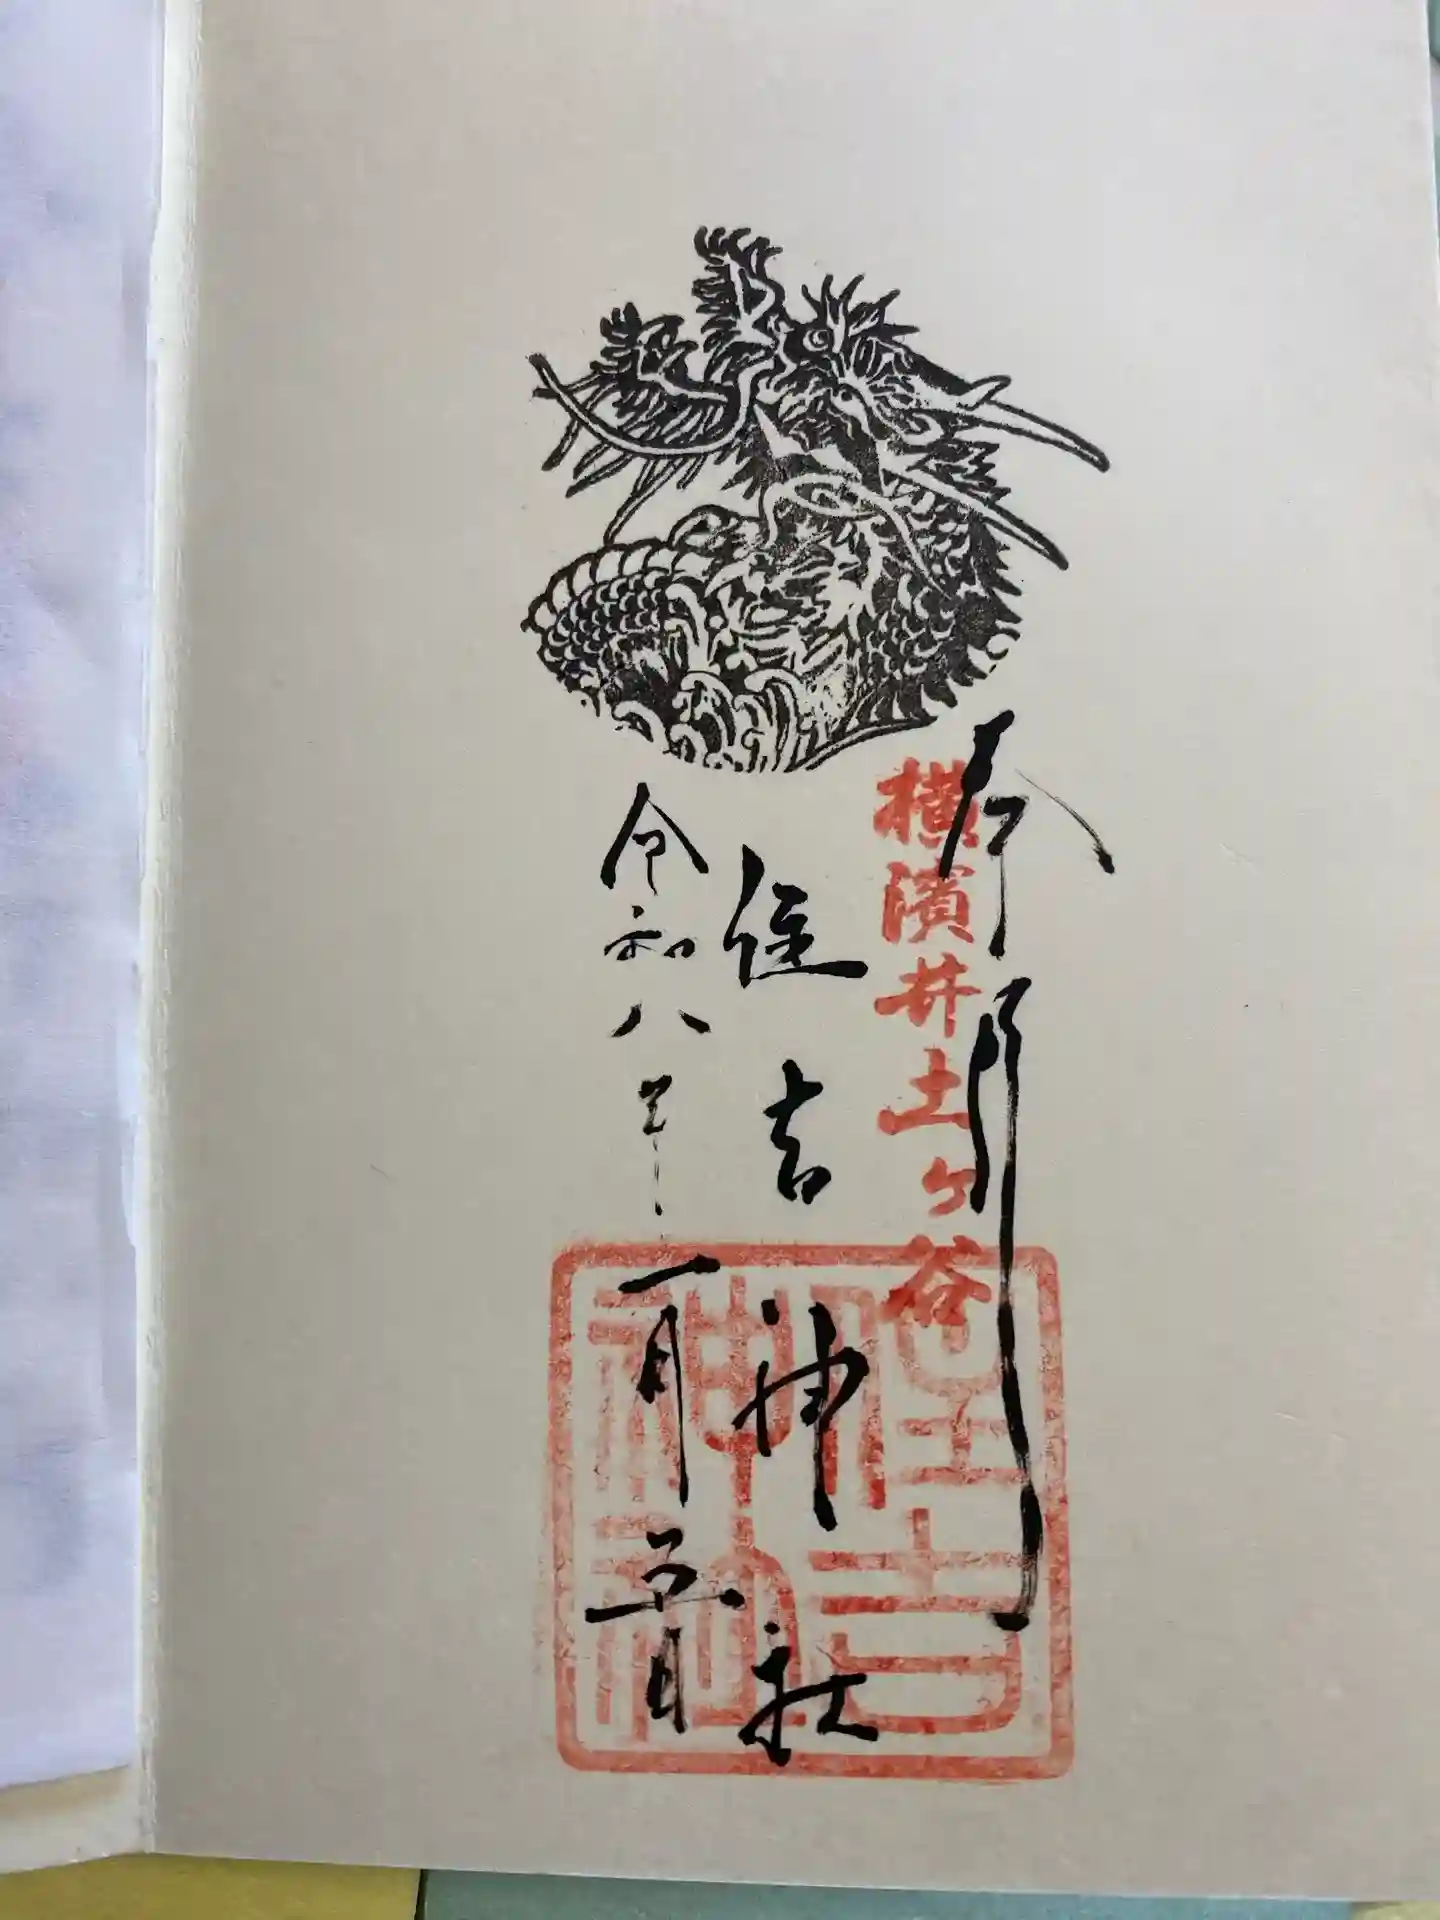 奉拝
横濱井土ヶ谷
住吉神社
令和八年一月五日
住吉